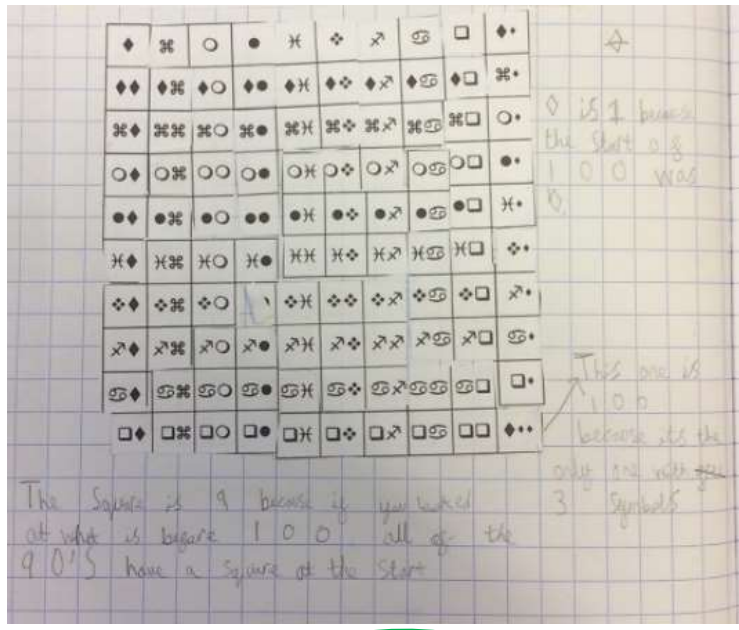 ♦ ⌘ ○ ● ♓ ❖ ♐ ♋ ❑ ♦•
♦♦ ♦⌘ ♦○ ♦● ♦♓ ♦❖ ♦♐ ♦♋ ♦❑ ⌘•
⌘♦ ⌘⌘ ⌘○ ⌘● ⌘♓ ⌘❖ ⌘♐ ⌘♋ ⌘❑ ○•
○♦ ○⌘ ○○ ○● ○♓ ○❖ ○♐ ○♋ ○❑ ●•
●♦ ●⌘ ●○ ●● ●♓ ●❖ ●♐ ●♋ ●❑ ♓•
♓♦ ♓⌘ ♓○ ♓● ♓♓ ♓❖ ♓♐ ♓♋ ♓❑ ❖•
❖♦ ❖⌘ ❖○ ❖♓ ❖❖ ❖♐ ❖♋ ❖❑ ♐•
♐♦ ♐⌘ ♐○ ♐● ♐♓ ♐❖ ♐♐ ♐♋ ♐❑ ♋•
♋♦ ♋⌘ ♋○ ♋● ♋♓ ♋❖ ♋♐ ♋♋ ♋❑ ❑•
❑♦ ❑⌘ ❑○ ❑● ❑♓ ❑❖ ❑♐ ❑♋ ❑❑ ♦••
◊ is 1
the start of
100 was
◊
This one is
100
because its the
only one with
3 symbols
The Square is 9 because if you looked
at what is before 100, all of the
90's have a square at the start